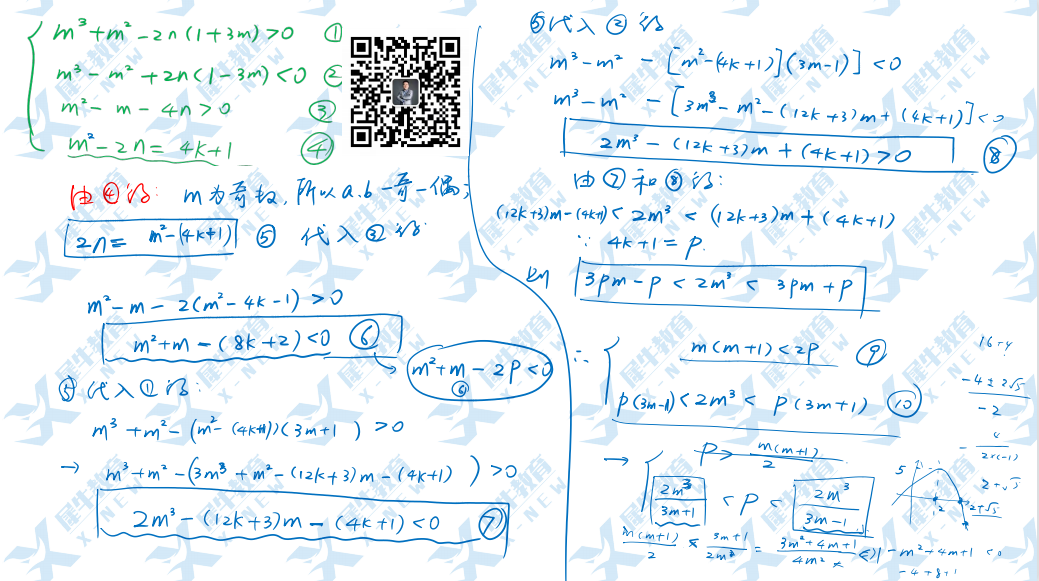 m³+m²-2n(1+3m)>0 ①
m³-m²+2n(1-3m)<0 ②
m²-m-4n>0 ③
m²-2n=4k+1 ④
由④得: m为奇数,所以a.b一奇一偶;
2n= m²-(4k+1) ⑤ 代入③得:
m²-m-2(m²-4k-1)>0
m²+m-(8k+2)<0 ⑥
m²+m-2p<0
⑥
⑤代入①得:
m³+m²-(m²-(4k+1))(3m+1)>0
→ m³+m²-(3m³+m²-(12k+3)m-(4k+1))>0
2m³-(12k+3)m-(4k+1)<0 ⑦
⑤代入②得
m³-m²-[m²-(4k+1)](3m-1)]<0
m³-m²-[3m³-m²-(12k+3)m+(4k+1)]<0
2m³-(12k+3)m+(4k+1)>0 ⑧
由⑦和⑧得:
(12k+3)m-(4k+1)<2m³<(12k+3)m+(4k+1)
∵ 4k+1=p.
则 3pm-p<2m³<3pm+p
∴ m(m+1)<2p ⑨
p(3m-1)<2m³<p(3m+1) ⑩
→ p>m(m+1)/2
2m³/(3m+1)<p<2m³/(3m-1)
m(m+1)/2 × (3m+1)/2m³ = (3m²+4m+1)/4m² <1
-m²+4m+1<0
-4+8+1
16+4
-4±2√5
-2
- 4/2×(-1)
2+√5
5
1
2
2+√5
犀牛教育
X-NEW